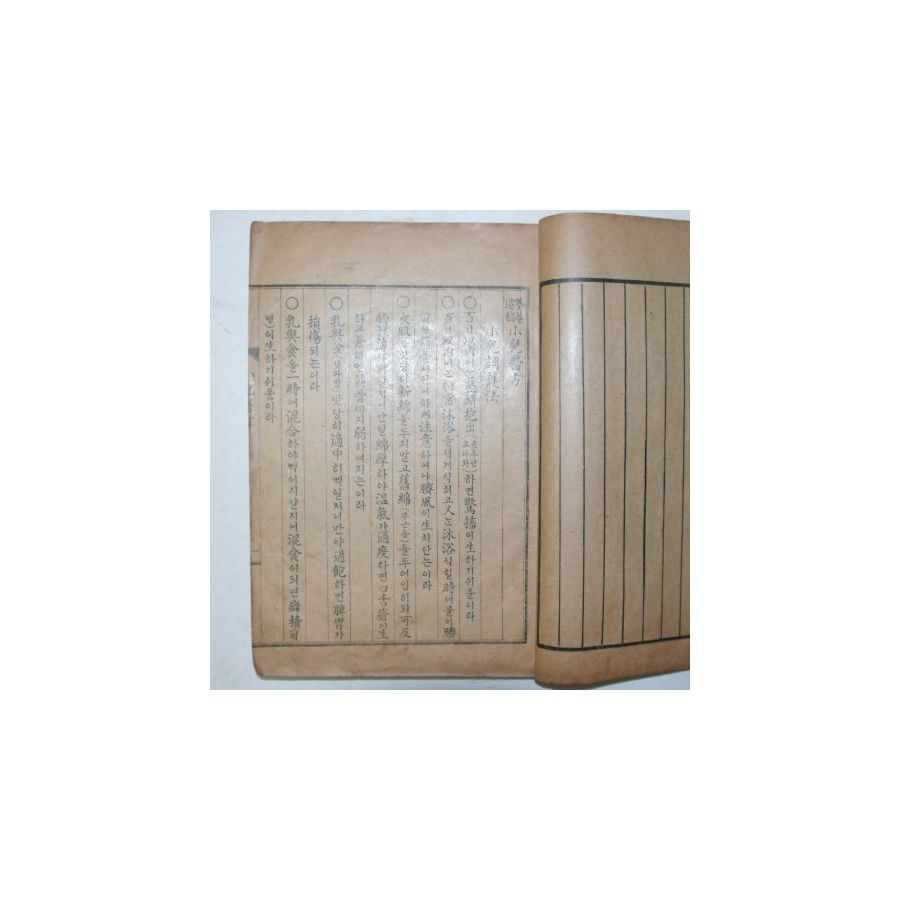 小兒醫方
小兒調護法
○ 百日以內에는 竪頭抱出 하면 驚搐이 生하기 쉬운이라
○ 百日以內에는 沐浴을 식히고 又는 沐浴식힐 時에 물이 臍
에 注意하여야 臍風이 生치 안는이라
○ 衣服은 맛당이 新綿을 두지 말고 舊綿(무근솜)을 두어 입히되 可及
的 만일 綿厚하야 溫氣가 過度하면 口舌瘡이 生
하고 筋骨까지 弱하여지는이라
○ 乳與食 맛당히 適中히 먹일지니 만약 過飽하면 脾胃가
損傷되는이라
○ 乳與食을 一時에 混合하야 먹이지 말지니 混食이 되면 癖積
이 生하기 쉬운이라